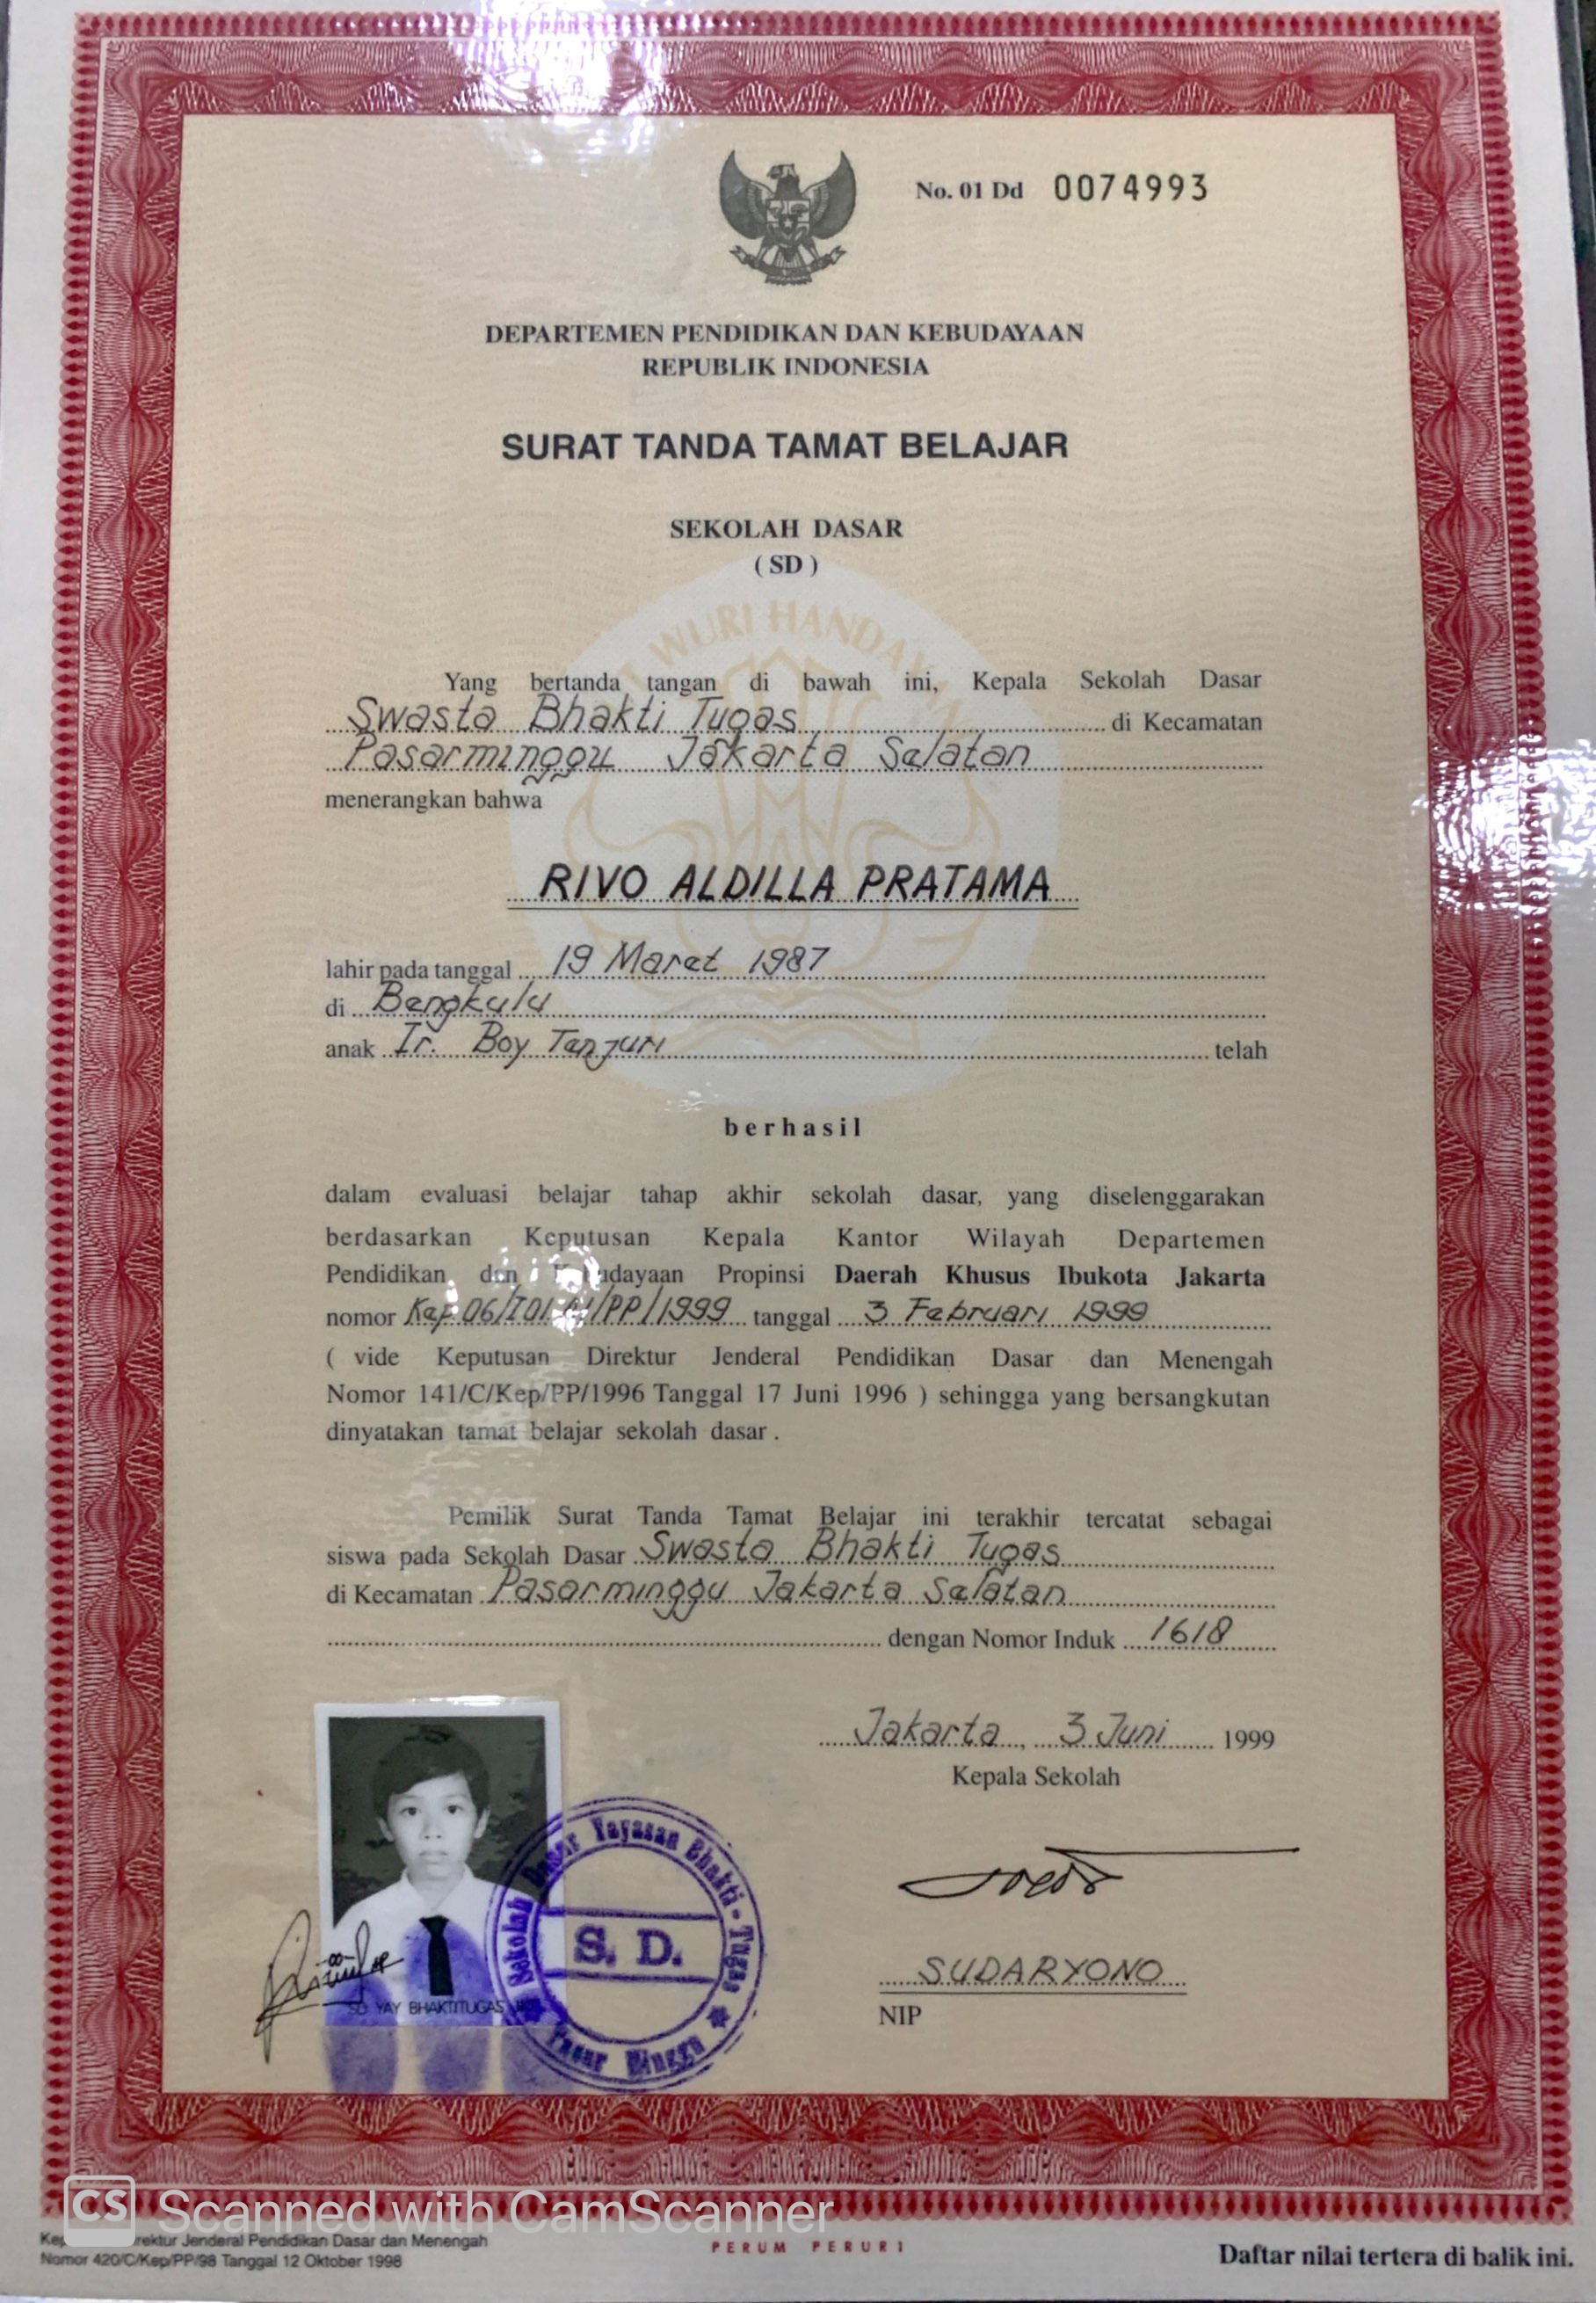 No. 01 Dd 0074993
DEPARTEMEN PENDIDIKAN DAN KEBUDAYAAN
REPUBLIK INDONESIA
SURAT TANDA TAMAT BELAJAR
SEKOLAH DASAR
( SD )
WURI HANDAYANI
Yang bertanda tangan di bawah ini, Kepala Sekolah Dasar
Swasta Bhakti Tugas di Kecamatan
Pasarminggu Jakarta Selatan
menerangkan bahwa
RIVO ALDILLA PRATAMA
lahir pada tanggal 19 Maret 1987
di Bengkulu
anak Ir. Boy Tanjuri telah
berhasil
dalam evaluasi belajar tahap akhir sekolah dasar, yang diselenggarakan
berdasarkan Keputusan Kepala Kantor Wilayah Departemen
Pendidikan dan Kebudayaan Propinsi Daerah Khusus Ibukota Jakarta
nomor tanggal 3 Februari 1999
( vide Keputusan Direktur Jenderal Pendidikan Dasar dan Menengah
Nomor 141/C/Kep/PP/1996 Tanggal 17 Juni 1996 ) sehingga yang bersangkutan
dinyatakan tamat belajar sekolah dasar .
Pemilik Surat Tanda Tamat Belajar ini terakhir tercatat sebagai
siswa pada Sekolah Dasar Swasta Bhakti Tugas
di Kecamatan Pasarminggu Jakarta Selatan
dengan Nomor Induk 1618
Jakarta, 3 Juni 1999
Kepala Sekolah
Sekolah Dasar Yayasan Bhakti-Tugas
S. D.
Pasar Minggu
SD YAY BHAKTITUGAS
SUDARYONO
NIP
CS Scanned with CamScanner
rektur Jenderal Pendidikan Dasar dan Menengah
Nomor 420/C/Kep/PP/98 Tanggal 12 Oktober 1998
PERUM PERURI
Daftar nilai tertera di balik ini.